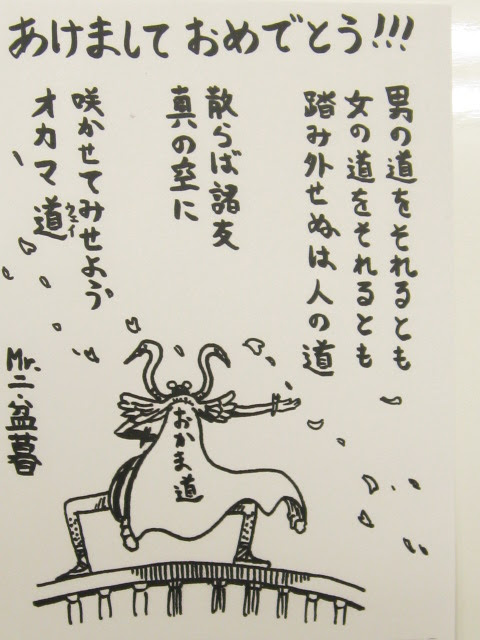 あけまして おめでとう!!!
男の道をそれるとも
女の道をそれるとも
踏み外せぬは人の道
散らば諸友
真の空に
咲かせてみせよう
オカマ道
ウェイ
Mr.二・盆暮
おかま道